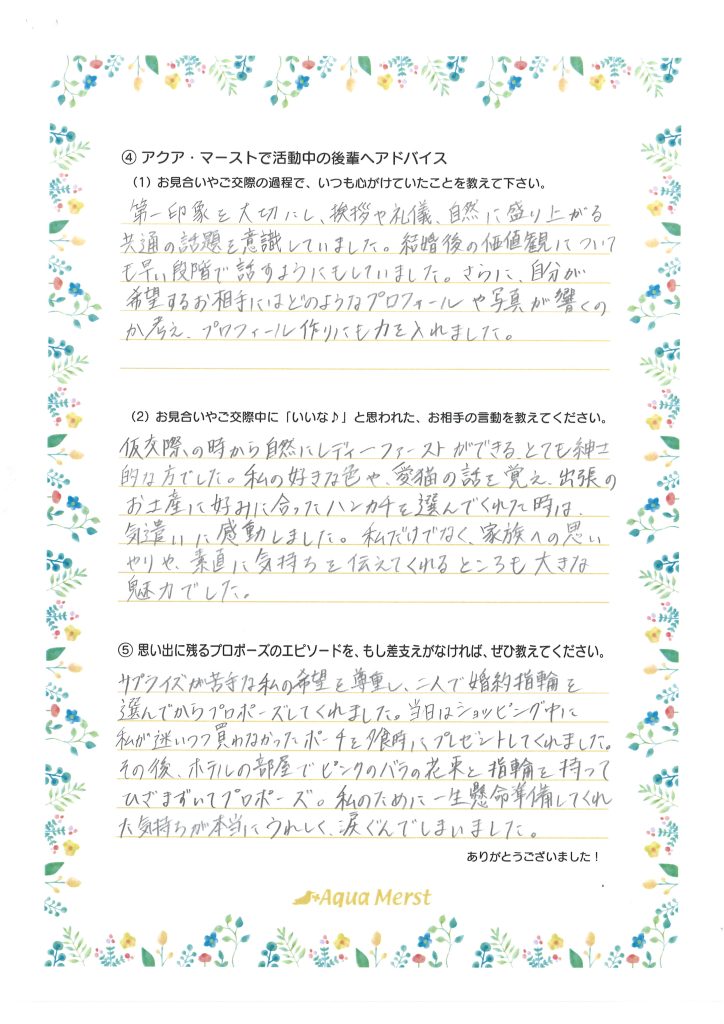 ④ アクア・マーストで活動中の後輩へアドバイス
（1）お見合いやご交際の過程で、いつも心がけていたことを教えて下さい。
第一印象を大切にし、挨拶や礼儀、自然に盛り上がる
共通の話題を意識していました。結婚後の価値観について
も早い段階で話すようにもしていました。さらに、自分が
希望するお相手にはどのようなプロフィールや写真が響くの
か考え、プロフィール作りにも力を入れました。
（2）お見合いやご交際中に「いいな♪」と思われた、お相手の言動を教えてください。
仮交際の時から自然にレディーファーストができるとても紳士
的な方でした。私の好きな色や、愛猫の話を覚え、出張の
お土産に好みに合ったハンカチを選んでくれた時は、
気遣いに感動しました。私だけでなく、家族への思い
やりや、素直に気持ちを伝えてくれるところも大きな
魅力でした。
⑤ 思い出に残るプロポーズのエピソードを、もし差支えがなければ、ぜひ教えてください。
サプライズが苦手な私の希望を尊重し、二人で婚約指輪を
選んでからプロポーズしてくれました。当日はショッピング中に
私が迷いつつ買わなかったポーチを夕食時にプレゼントしてくれました。
その後、ホテルの部屋でピンクのバラの花束と指輪を持って
ひざまずいてプロポーズ。私のために一生懸命準備してくれ
た気持ちが本当にうれしく、涙ぐんでしまいました。
ありがとうございました！
Aqua Merst